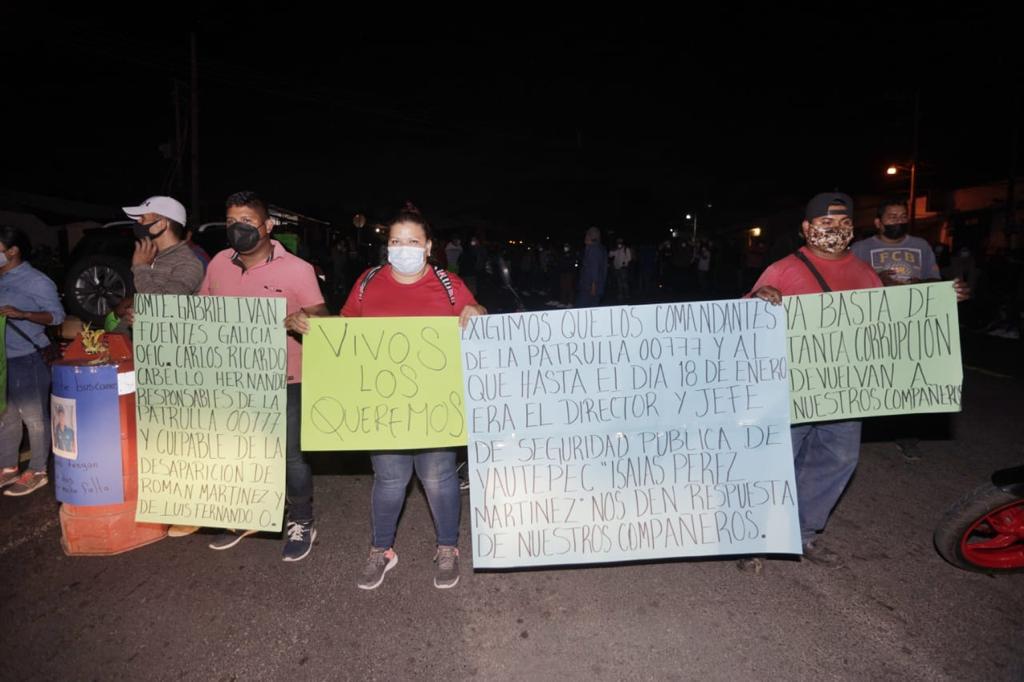 te buscamos
OMTE. GABRIEL IVAN
FUENTES GALICIA
OFIC. CARLOS RICARDO
CABELLO HERNANDE
RESPONSABLES DE LA
PATRULLA 00777
Y CULPABLE DE LA
DESAPARICION DE
ROMAN MARTINEZ Y
DE LUIS FERNANDO O.
VIVOS
LOS
QUEREMOS
EXIGIMOS QUE LOS COMANDANTES
DE LA PATRULLA 00777 Y AL
QUE HASTA EL DIA 18 DE ENERO
ERA EL DIRECTOR Y JEFE
DE SEGURIDAD PUBLICA DE
YAUTEPEC "ISAIAS PEREZ
MARTINEZ" NOS DEN RESPUESTA
DE NUESTROS COMPAÑEROS.
YA BASTA DE
TANTA CORRUPCION
DEVUELVAN A
NUESTROS COMPAÑEROS
FCB